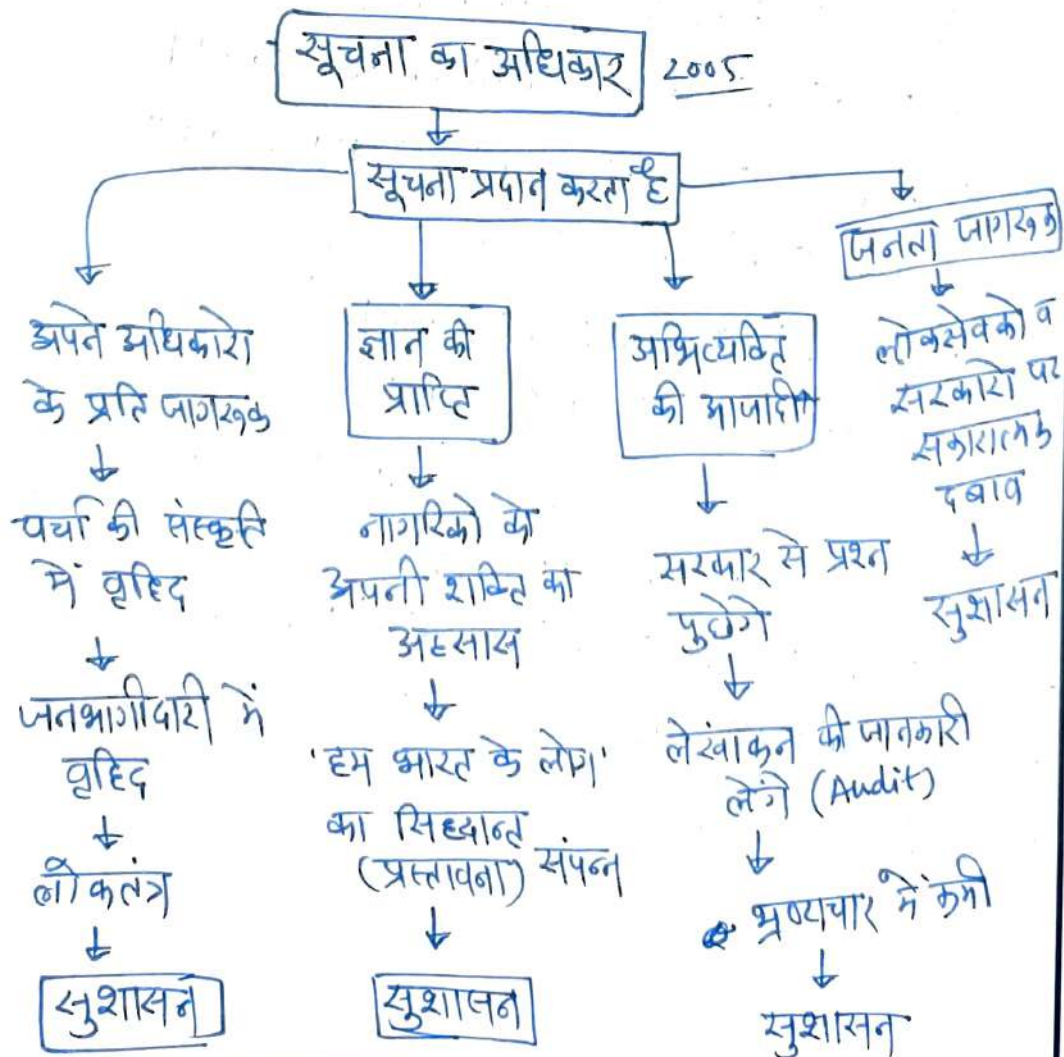 सूचना का अधिकार 2005
सूचना प्रदान करता है
अपने अधिकारो
के प्रति जागरूक
↓
चर्चा की संस्कृति
में वृद्धि
↓
जनभागीदारी में
वृद्धि
↓
लोकतंत्र
↓
सुशासन
ज्ञान की
प्राप्ति
↓
नागरिको को
अपनी शक्ति का
अहसास
↓
'हम भारत के लोग'
का सिद्धान्त
(प्रस्तावना) संपन्न
↓
सुशासन
अभिव्यक्ति
की आजादी
↓
सरकार से प्रश्न
पुछेगे
↓
लेखांकन की जानकारी
लेंगे (Audit)
↓
भ्रष्टाचार में कमी
↓
सुशासन
जनता जागरूक
↓
लोकसेवको व
सरकारो पर
सकारात्मक
दबाव
↓
सुशासन